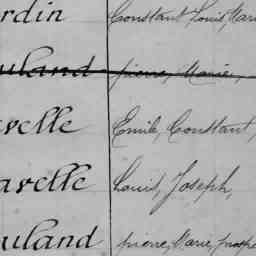 rdin Constant, Louis, Marie
uland pierre, Marie,
velle Emile, Constant,
avelle Louis, Joseph,
uland pierre, Marie, prosp